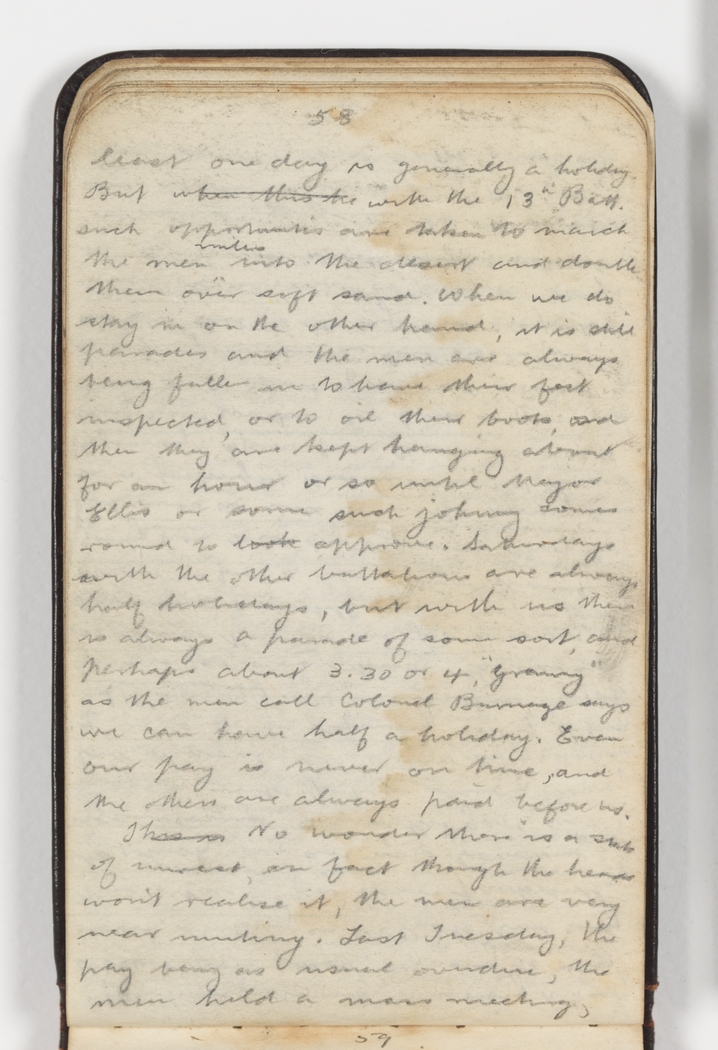 58
least one day is generally a holiday.
But when this is with the 13th Batt.
such opportunities are taken to march
miles
the men into the desert and double
them over soft sand. When we do
stay in on the other hand, it is still
parades and the men are always
being fallen in to have their feet
inspected, or to oil their boots, and
then they are kept hanging about
for an hour or so until Major
Ellis or some such johnny comes
round to look approve. Saturdays
with the other battalions are always
half holidays, but with us there
is always a parade of some sort, and
perhaps about 3.30 or 4, "Granny"
as the men call Colonel Burnage says
we can have half a holiday. Even
our pay is never on time, and
the others are always paid before us.
No wonder there is a state
of unrest, in fact though the heads
won't realise it, the men are very
near mutiny. Last Tuesday, the
pay being as usual overdue, the
men held a mass meeting,
59